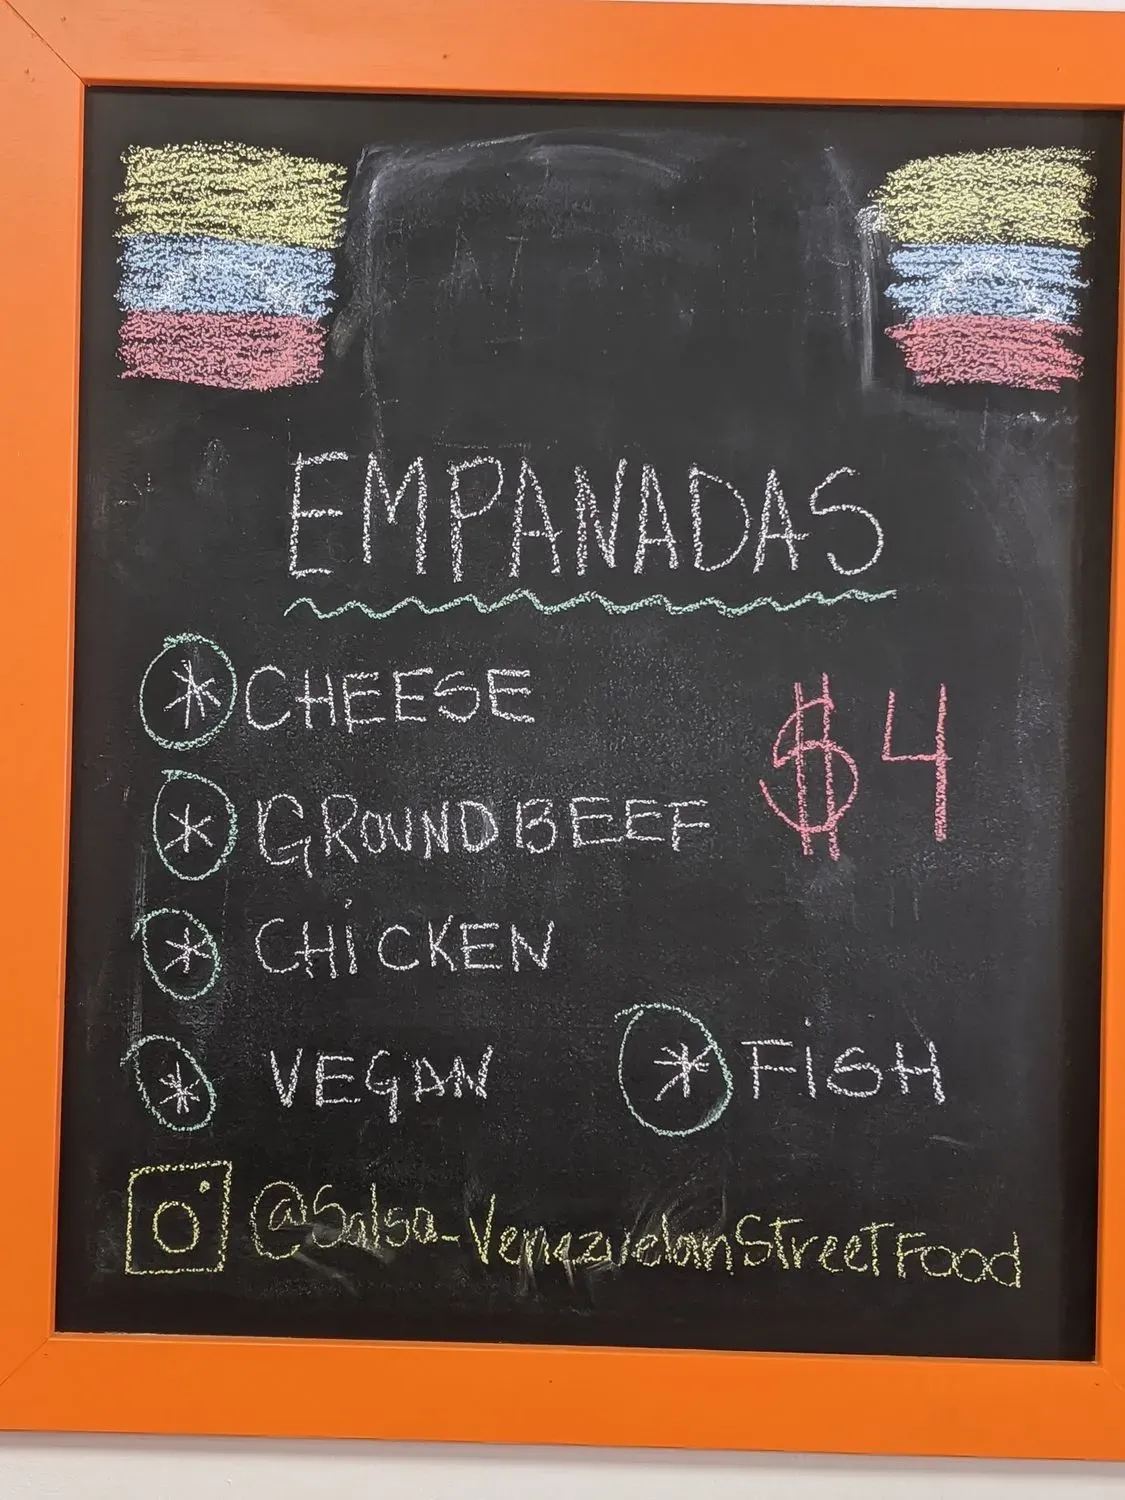 EMPANADAS
CHEESE
$4
GROUND BEEF
CHICKEN
VEGAN
FISH
@Salsa_VenezuelanStreetFood